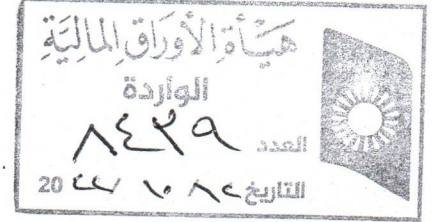 هيأة الأوراق المالية
الواردة
العدد ٨٤٣٩
التاريخ 20